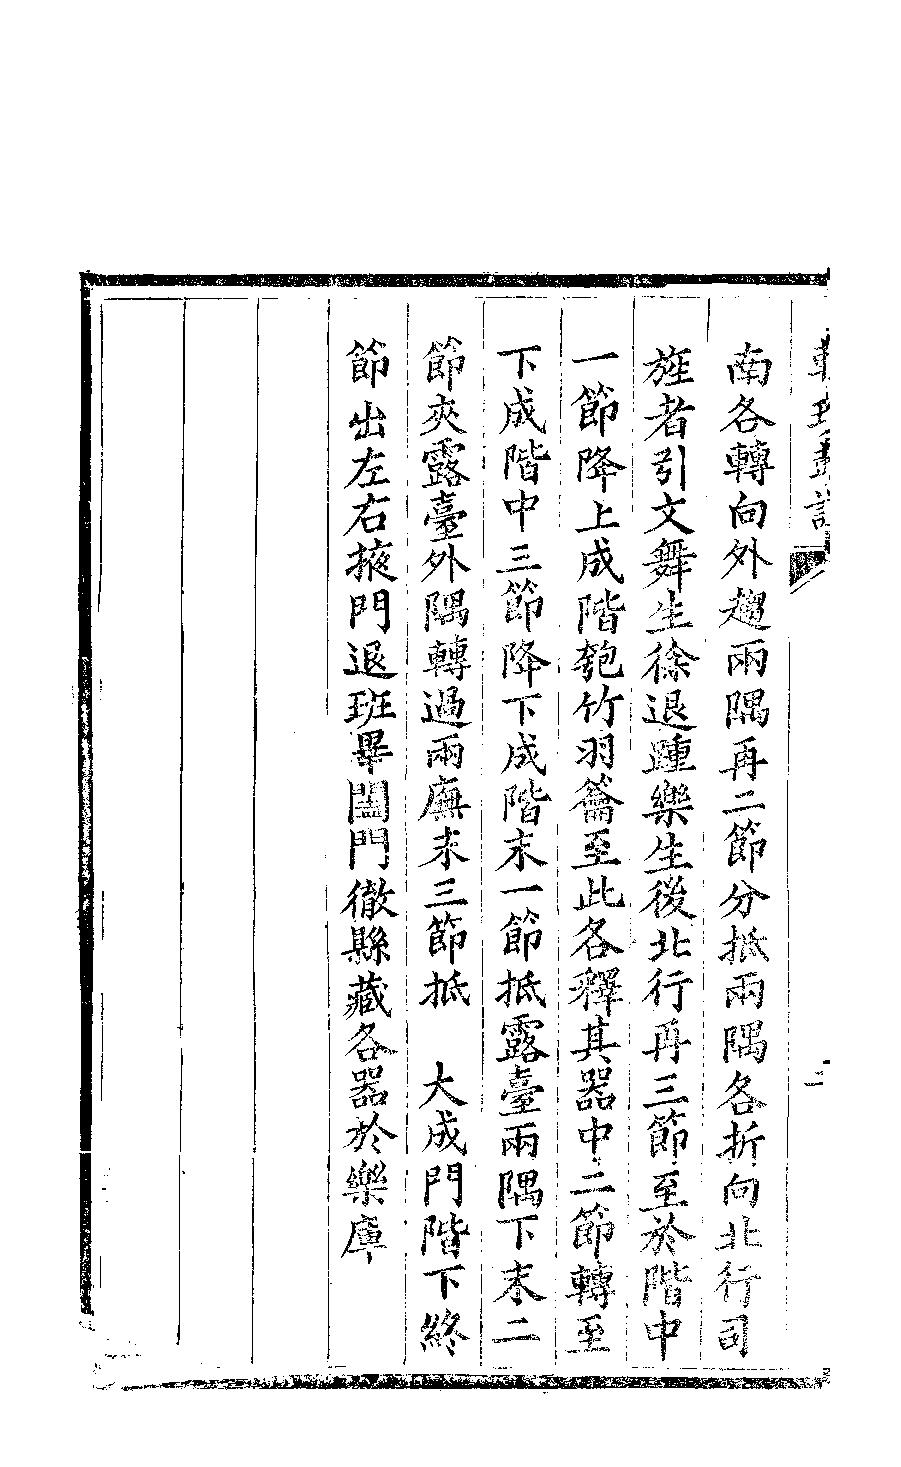 南各轉向外趨兩隅再二節分抵兩隅各折向北行司
旌者引文舞生徐退踵樂生後北行再三節至於階中
一節降上成階匏竹羽籥至此各釋其器中二節轉至
下成階中三節降下成階末一節抵露臺兩隅下末二
節夾露臺外隅轉過兩廡末三節抵　大成門階下終
節出左右掖門退班畢闔門徹縣藏各器於樂庫
二